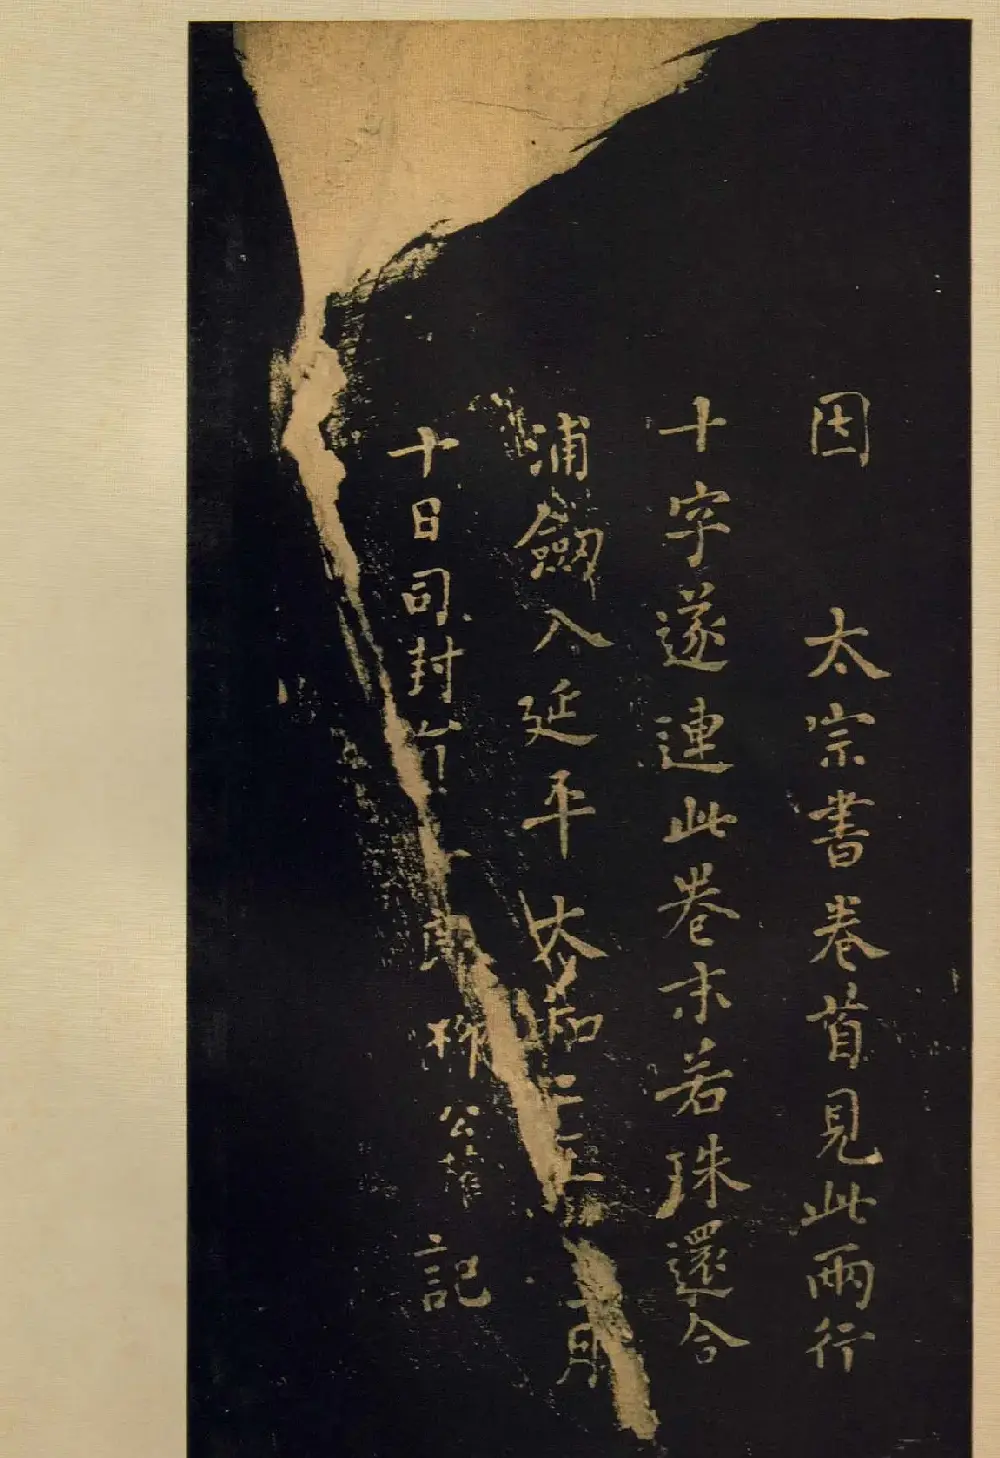 因 太宗書卷首見此兩行
十字遂連此卷末若珠還合
浦劒入延平 二 月
十日司封 郎 柳公 記